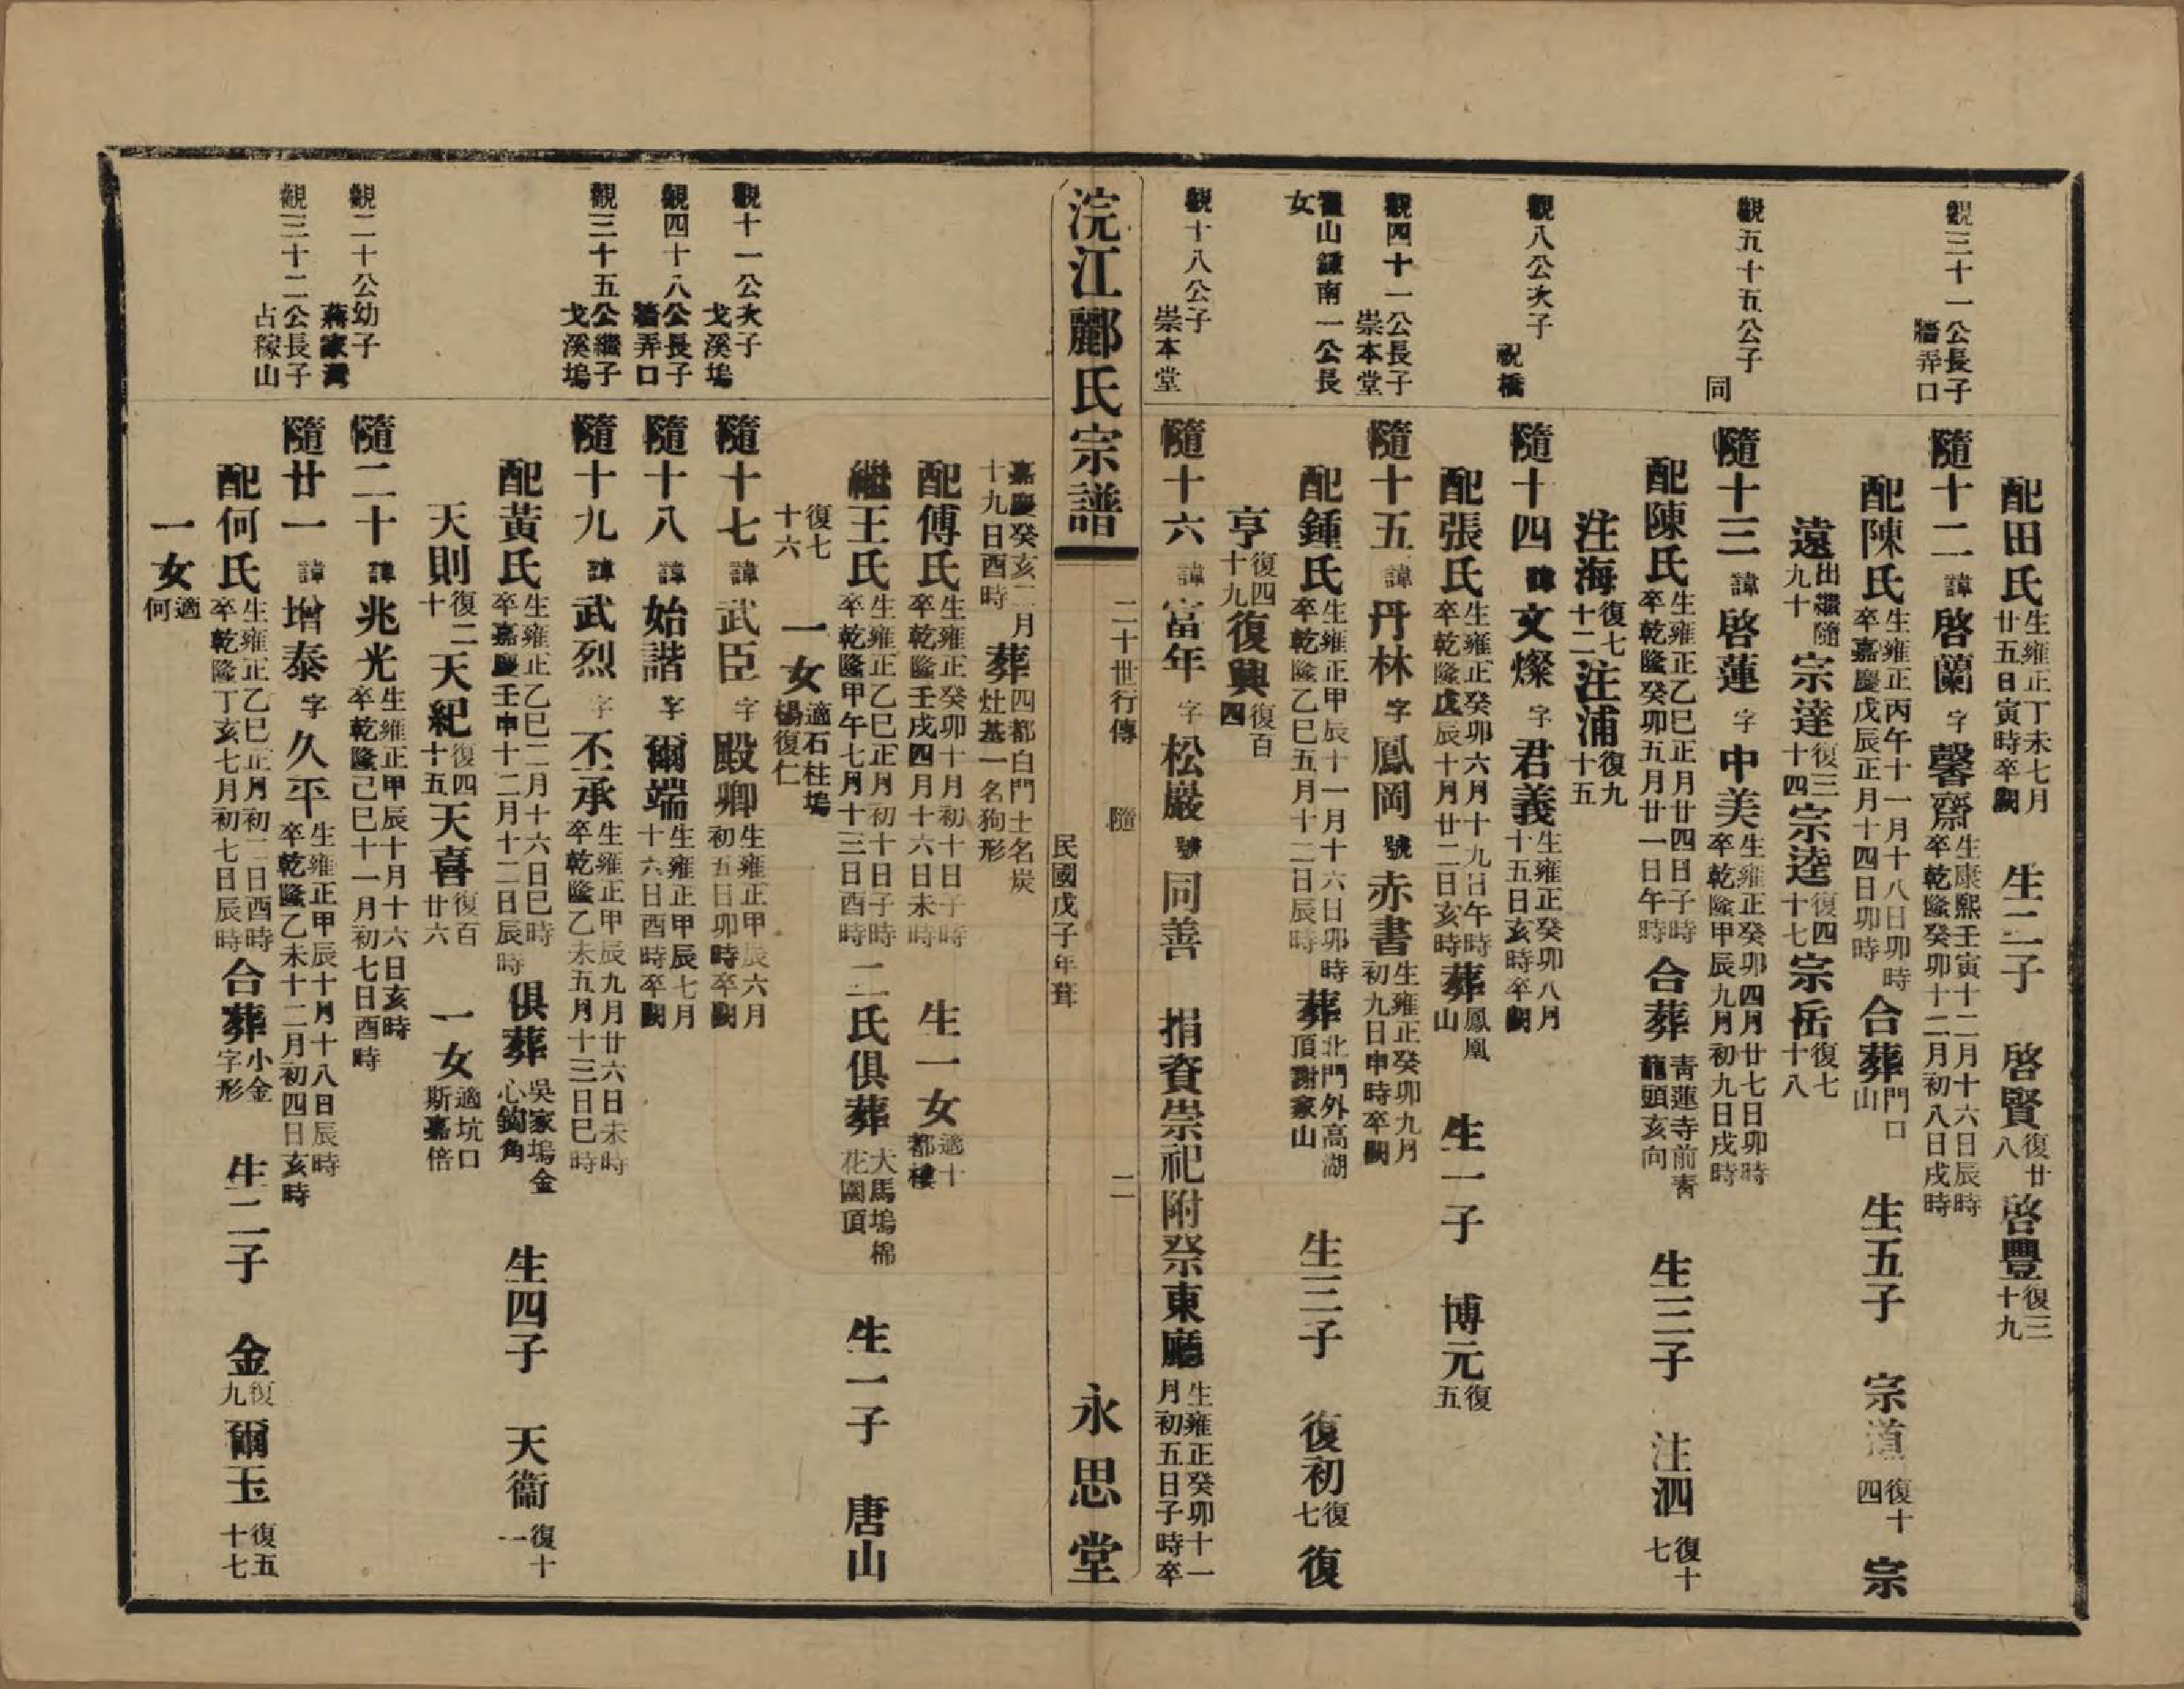 配田氏生雍正丁未七月廿五日寅時卒闕 生二子 啓賢復廿八啓豐復三十九
觀三十一公長子牆弄口
隨十二諱啓蘭字馨齋生康熙壬寅十二月十六日辰時卒乾隆癸卯十二月初八日戌時
配陳氏生雍正丙午十一月十八日卯時卒嘉慶戊辰正月十四日卯時合葬門口山 生五子 宗道復十四 宗
遠出繼隨九十 宗達復三十四宗逵復四十七宗岳復七十八
觀五十五公子同
隨十三諱啓蓮字中美生雍正癸卯四月廿七日卯時卒乾隆甲辰九月初九日戌時
配陳氏生雍正乙巳正月廿四日子時卒乾隆癸卯五月廿一日午時合葬青蓮寺前青龍頭亥向 生三子 注泗復十七
注海復七十二注浦復九十五
觀八公次子祝橋
隨十四諱文燦字君義生雍正癸卯八月十五日亥時卒闕
配張氏生雍正癸卯六月十九日午時卒乾隆戊辰十月廿二日亥時葬鳳凰山 生一子 博元復五
觀四十一公長子崇本堂
隨十五諱丹林字鳳岡號赤書生雍正癸卯九月初九日申時卒闕
山鍾南一公長女
配鍾氏生雍正甲辰十一月十六日卯時卒乾隆乙巳五月十二日辰時葬北門外高湖頂謝家山 生三子 復初復七 復
亨復四十九復興復百四
觀十八公子崇本堂
隨十六諱富年字松嚴號同善 捐資崇祀附祭東廳生雍正癸卯十一月初五日子時卒
浣江酈氏宗譜 二十世行傳 隨 二 民國戊子年葺 永思堂
嘉慶癸亥二月十九日酉時葬四都白門土名炭灶基一名狗形
配傅氏生雍正癸卯十月初十日子時卒乾隆壬戌四月十六日未時 生一女適十都樓
繼王氏生雍正乙巳正月初十日子時卒乾隆甲午七月十三日酉時二氏俱葬大馬塢棉花園頂 生一子 唐山
復七十六 一女適石柱塢楊復仁
觀十一公次子戈溪塢
隨十七諱武臣字殿卿生雍正甲辰六月初五日卯時卒闕
觀四十八公長子牆弄口
隨十八諱始諧字爾端生雍正甲辰七月十六日酉時卒闕
觀三十五公繼子戈溪塢
隨十九諱武烈字丕承生雍正甲辰九月廿六日未時卒乾隆乙未五月十三日巳時
配黃氏生雍正乙巳二月十六日巳時卒嘉慶壬申十二月十二日辰時俱葬吳家塢金心鈎角 生四子 天衢復十一
天則復二十天紀復四十五天喜復百廿六 一女適坑口斯嘉倍
觀二十公幼子蔣家灣
隨二十諱兆光生雍正甲辰十月十六日亥時卒乾隆己巳十一月初七日酉時
觀三十二公長子占稼山
隨廿一諱增泰字久平生雍正甲辰十月十八日辰時卒乾隆乙未十二月初四日亥時
配何氏生雍正乙巳正月初二日酉時卒乾隆丁亥七月初七日辰時合葬小金字形 生二子 金復九爾玉復五十七
一女適何